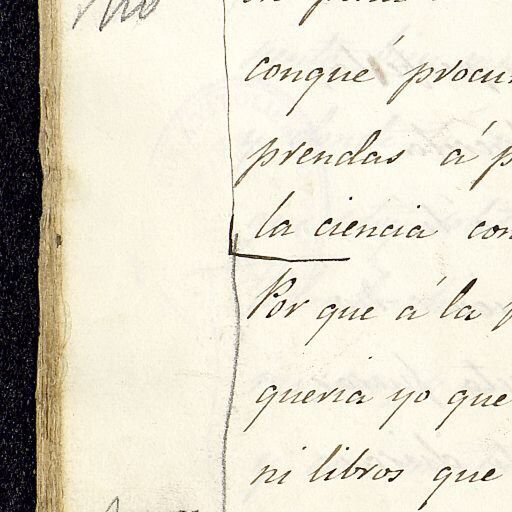 No
conque procu
prendas á p
la ciencia con
Por que á la
queria yo que
ni libros que